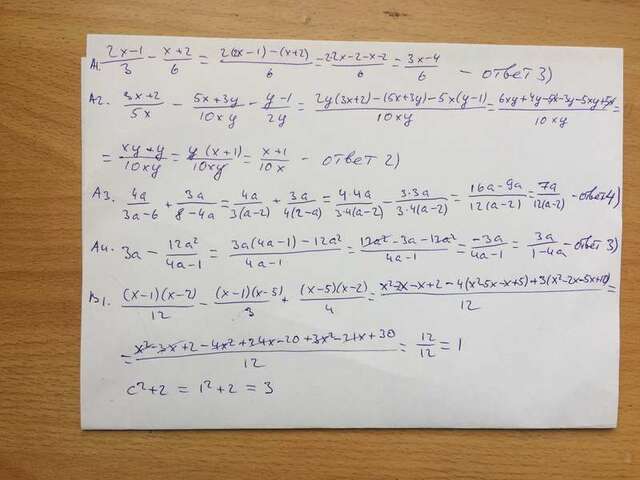 A1. (2x-1)/3 - (x+2)/6 = (2(2x-1)-(x+2))/6 = (4x-2-x-2)/6 = (3x-4)/6 - ответ 3)
A2. (3x+2)/5x - (5x+3y)/10xy - (y-1)/2y = (2y(3x+2)-(5x+3y)-5x(y-1))/10xy =
= (xy+y)/10xy = y(x+1)/10xy = (x+1)/10x - ответ 2)
A3. 4a/(3a-6) + 3a/(8-4a) = 4a/3(a-2) + 3a/4(2-a) = 4·4a/3·4(a-2) - 3·3a/3·4(a-2) = (16a-9a)/12(a-2) = 7a/12(a-2) - ответ 4)
A4. 3a - 12a²/(4a-1) = (3a(4a-1)-12a²)/(4a-1) = (12a²-3a-12a²)/(4a-1) = -3a/(4a-1) = 3a/(1-4a) - ответ 3)
B1. (x-1)(x-2)/12 - (x-1)(x-5)/3 + (x-5)(x-2)/4 =
= (x²-3x+2-4x²+24x-20+3x²-21x+30)/12 = 12/12 = 1
c²+2 = 1²+2 = 3